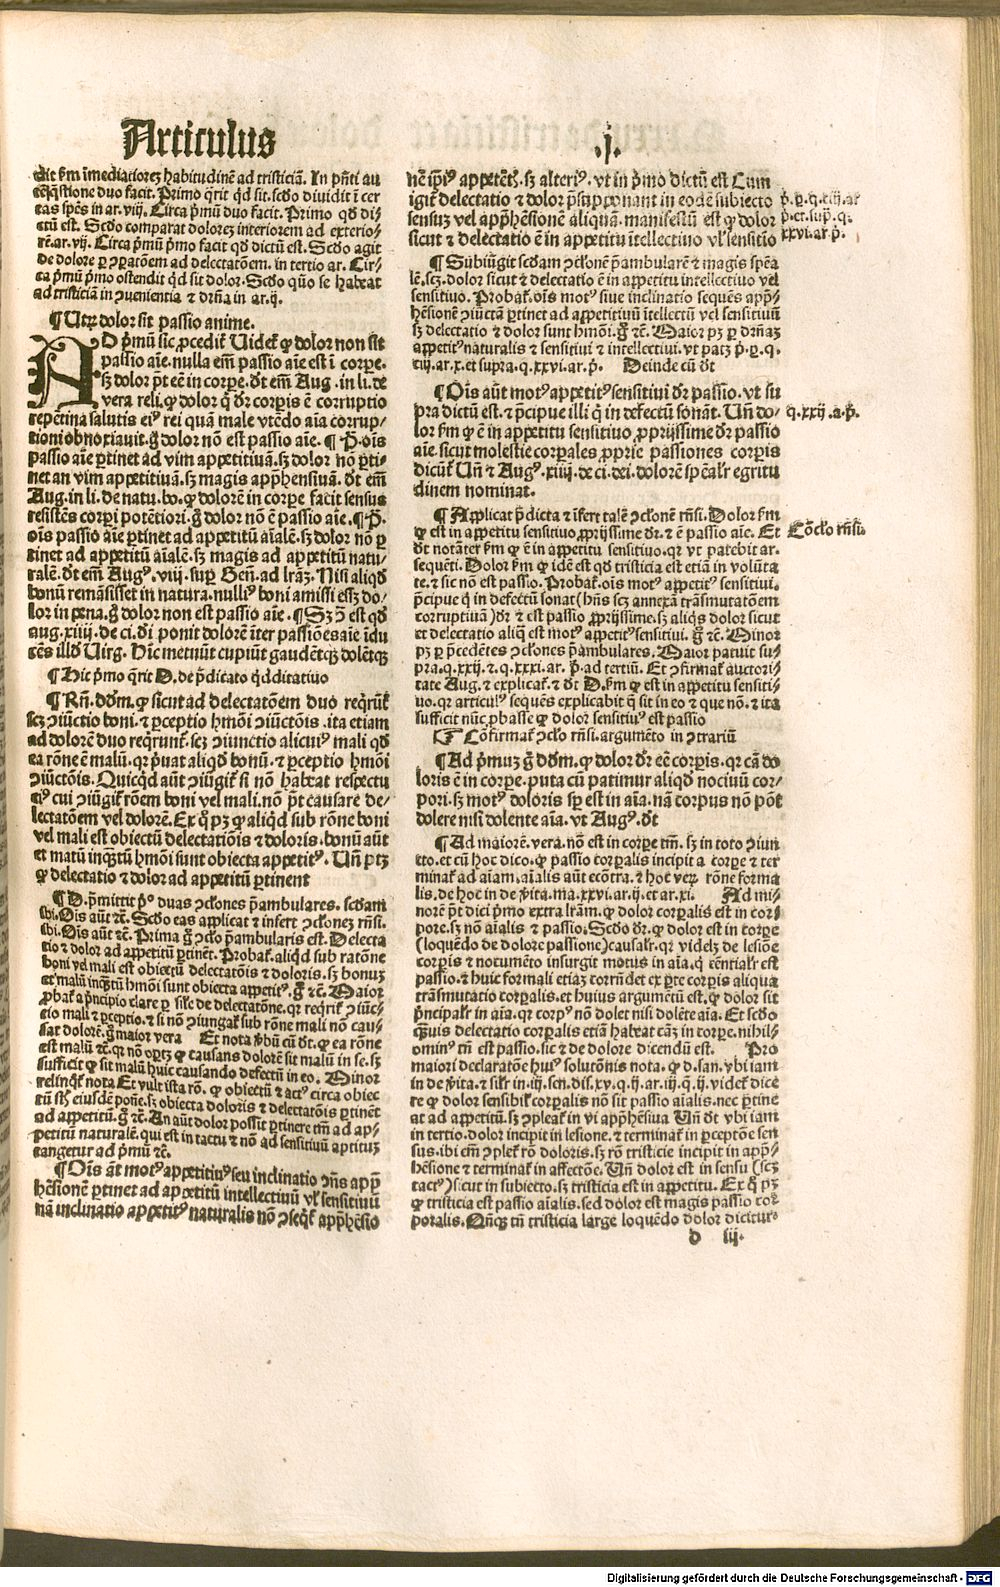 Articulus .j.
dit ẜm īmediatiorez habitudinē ad tristiciā. In p̄nti au
tē q̄stione duo facit. Primo q̄rit qd sit. scđo diuidit ī cer
tas spēs in ar. viij. Circa p̄mū duo facit. Primo qđ di
ctū est. Scđo comparat dolorez interiorem ad exterio⸗
rē. ar. vij. Circa p̄mū p̄mo facit qđ dictū est. Scđo agit
de dolore ꝑ ꝯꝑatōem ad delectatōem. in tertio ar. Cir⸗
ca p̄mū p̄mo ostendit qd sit dolor. Scđo quō se habeat
ad tristiciā in ꝯuenientia ⁊ drn̄a in ar. ij.
¶ Utrꝫ dolor sit passio anime.
AD p̄mū sic ꝓcedit᷑ Uidet᷑ ꝙ dolor non sit
passio aīe. nulla em̄ passio aīe est ī corꝑe.
sꝫ dolor pōt eē in corꝑe. dt̄ em̄ Aug. in li. de
vera reli. ꝙ dolor q̄ dr̄ corꝑis ē corruptio
repētina salutis eiꝰ rei quā male vtēdo aīa corrup⸗
tioni obnoxiauit. g̊ dolor nō est passio aīe. ¶ P. oīs
passio aīe ꝑtinet ad vim appetitiuā. sꝫ dolor nō ꝑti⸗
net an vim appetitiuā. sꝫ magis apprehensiuā. dt̄ em̄
Aug. in li. de natu. bo. ꝙ dolorē in corꝑe facit sensus
resistēs corꝑi potētiori. g̊ dolor nō ē passio aīe. ¶ P.
oīs passio aīe ꝑtinet ad appetitū aīalē. sꝫ dolor nō ꝑ
tinet ad appetitū aīalē. sꝫ magis ad appetitū natu⸗
ralē. dt̄ em̄ Augꝰ. viij. suꝑ Gen̄. ad lr̄āꝫ. Nisi aliqđ
bonū remāsisset in natura. nulliꝰ boni amissi essꝫ do⸗
lor in pena. g̊ dolor non est passio aīe. ¶ Sꝫ ꝯ̄ est qđ
aug. xiiij. de ci. di ponit dolorē īter passiōes aīe īdu
cēs illđ Uirg. Hīc metuūt cupiūt gaudētqꝫ dolētqꝫ
¶ Hic p̄mo q̄rit D. de p̄dicato q̄dditatiuo
¶ Rn̄. dd̄m. ꝙ sicut ad delectatōem duo req̄rūt᷑
scꝫ ꝯiūctio boni. ⁊ ꝑceptio hm̄oi ꝯiūctōis. ita etiam
ad dolorē duo req̄runt᷑. scꝫ ꝯiunctio alicuiꝰ mali qđ
ea rōne ē malū. qꝛ p̄uat aliqđ bonū. ⁊ ꝑceptio hm̄oi
ꝯiūctōis. Quicqd aūt ꝯiūgit᷑ si nō habeat respectu
eiꝰ cui ꝯiūgit᷑ rōem boni vel mali. nō pōt causare de⸗
lectatōem vel dolorē. Ex q̊ pꝫ ꝙ aliqd sub rōne boni
vel mali est obiectū delectatiōis ⁊ doloris. bonū aūt
et malū inqꝫtū hm̄oi sunt obiecta appetitꝰ. Un̄ pꝫ
ꝙ delectatio ⁊ dolor ad appetitū ꝑtinent
¶ D. p̄mittit p̊ duas ꝯclones p̄ambulares. scđam
ibi. Ois aūt ⁊c̄. Scđo eas applicat ⁊ infert ꝯclonez rn̄si.
ibi. Ois aūt ⁊c̄. Prima g̊ ꝯclo p̄ambularis est. Delecta
tio ⁊ dolor ad appetitū ꝑtinēt. Probat᷑. aliqd sub ratōne
boni vel mali est obiectū delectatōis ⁊ doloris. sꝫ bonuꝫ
et malū inqꝫtū hm̄oi sunt obiecta appetitꝰ. g̊ ⁊c̄. Maior
ꝓbat᷑ a p̄ncipio clare ꝑ sil̄e de delectatōne. qꝛ req̄rit᷑ ꝯiūc⸗
tio mali ⁊ ꝑceptio. ⁊ si nō ꝯiungat᷑ sub rōne mali nō cau⸗
sat dolorē. g̊ maior vera Et nota ꝟbū cū dt̄. ꝙ ea rōne
est malū ⁊c̄. qꝛ nō oꝑtꝫ ꝙ causans dolorē sit malū in se. sꝫ
sufficit ꝙ sit malū huic causando defectū in eo. Minor
relinq̄t᷑ nota Et vult ista rō. ꝙ obiectū ⁊ actꝰ circa obiec
tū sūt eiusdē ponē. sꝫ obiecta doloris ⁊ delectatōis ꝑtinēt
ad appetitū. g̊ ⁊c̄. An aūt dolor possit ꝑtinere tm̄ ad ap⸗
petitū naturalē. qui est in tactu ⁊ nō ad sensitiuū aptitus
tangetur ad p̄mū ⁊c̄.
¶ Ois āt motꝰ appetitiuꝰ seu inclinatio ꝯn̄s app̄
hēsionē ꝑtinet ad appetitū intellectiuū vl̓ sensitiuū
nā inclinatio appetitꝰ naturalis nō ꝯseq̄t᷑ app̄hēsio
nē ip̄iꝰ appetētꝭ. sꝫ alteriꝰ. vt in p̄mo dictū est Cum
igit᷑ delectatio ⁊ dolor p̄supponant in eodē subiecto
sensuꝫ vel app̄hēsionē aliquā. manifestū est ꝙ dolor
sicut ⁊ delectatio ē in appetitu ītellectiuo vl̓ sensitiō
p̄. p. q. ciij. ar
p. et. sup̄. q.
xxvi. ar. p̄.
¶ Subiūgit scđam ꝯclonē p̄ambularē ⁊ magis spēa
lē. scꝫ. dolor sicut ⁊ delectatio ē in appetitu intellectiuo vel
sensitiuo. Probat᷑. oīs motꝰ siue inclinatio sequēs app̄⸗
hēsionē ꝯiūctā ꝑtinet ad appetitiuū ītellectū vel sensitiuū
sꝫ delectatio ⁊ dolor sunt hm̄oi. g̊ ⁊c̄. Maior pꝫ ꝑ drn̄az
appetitꝰ naturalis ⁊ sensitiui ⁊ intellectiui. vt patꝫ p̄. p. q.
ciij. ar. x. et supra. q. xxvi. ar. p̄. Deinde cū dt̄
¶ Ois aūt motꝰ appetitꝰ sensitiui dr̄ passio. vt su
pra dictū est. ⁊ p̄cipue illi q̄ in defectū sonāt. Un̄ do⸗
lor ẜm ꝙ ē in appetitu sensitiuo ꝓprijssime dr̄ passio
aīe. sicut molestie corꝑales ꝓprie passiones corꝑis
dicūt᷑ Un̄ ⁊ Augꝰ. xiiij. de ci. dei. dolorē spēal̓r egritu
dinem nominat.
q. xxij. a. p̄.
¶ Applicat p̄dicta ⁊ īfert talē ꝯclonē rn̄si. Dolor ẜm
ꝙ est in appetitu sensitiuo, ꝓprijssime dr̄. ⁊ ē passio aīe. Et
dt̄ notāter ẜm ꝙ ē in appetitu sensitiuo. qꝛ vt patebit ar.
sequēti. Dolor ẜm ꝙ idē est qđ tristicia est etiā in volūta
te. ⁊ sic nō est passio. Probat᷑. oīs motꝰ appetitꝰ sensitiui.
p̄cipue q̄ in defectū sonat (hn̄s scꝫ annexā trāsmutatōem
corruptiuā) dr̄ ⁊ est passio ꝓprijssime. sꝫ aliqs dolor sicut
et delectatio aliq̄ est motꝰ appetitꝰ sensitiui. g̊ ⁊c̄. Minor
pꝫ ꝑ p̄cedētes ꝯclones p̄ambulares. Maior patuit su⸗
pra. q. xxij. ⁊. q. xxxi. ar. p̄. ad tertiū. Et ꝯfirmat᷑ auctori⸗
tate Aug. ⁊ explicat᷑. ⁊ dt̄ D. ẜm ꝙ est in appetitu sensiti⸗
uo. qꝛ articulꝰ sequēs explicabit q̄ sit in eo ⁊ que nō. ⁊ ita
sufficit nūc ꝓbasse ꝙ dolor sensitiuꝰ est passio
Cōclo rn̄si.
☞ Cōfirmat᷑ ꝯclo rn̄si. argumēto in ꝯtrariū
¶ Ad p̄muꝫ g̊ dd̄m. ꝙ dolor dr̄ eē corꝑis. qꝛ cā do
loris ē in corꝑe. puta cū patimur aliqđ nociuū cor⸗
pori. sꝫ motꝰ doloris sꝑ est in aīa. nā corpus nō pōt
dolere nisi dolente aīa. vt Augꝰ. dt̄
¶ Ad maiorē. vera. nō est in corꝑe tm̄. sꝫ in toto ꝯiun
cto. et cū hoc dico. ꝙ passio corꝑalis incipit a corꝑe ⁊ ter
minat᷑ ad aīam, aīalis aūt ecōtra. ⁊ hoc veꝝ rōne forma
lis. de hoc in de ꝟita. ma. xxvi. ar. ij. et ar. xi. Ad mi⸗
norē pōt dici p̄mo extra lr̄am. ꝙ dolor corꝑalis est in cor⸗
pore. sꝫ nō aīalis ⁊ passio. Scđo dr̄. ꝙ dolor est in corꝑe
(loquēdo de dolore passione) causal̓r. qꝛ videlꝫ de lesiōe
corꝑis ⁊ notumēto insurgit motus in aīa. q̄ eēntial̓r est
passio. ⁊ huic formali etiaꝫ corrn̄det ex ꝑte corꝑis aliqua
trāsmutatio corꝑalis. et huius argumētū est. ꝙ dolor sit
p̄ncipal̓r in aīa. qꝛ corpꝰ nō dolet nisi dolēte aīa. Et scđo
qꝫuis delectatio corꝑalis etiā habeat cāꝫ in corꝑe. nihil⸗
ominꝰ tn̄ est passio. sic ⁊ de dolore dicendū est. Pro
maiori declaratōe huiꝰ solutōnis nota. ꝙ d. san. vbi iam
in de ꝟita. ⁊ sil̓r in. iij. sen. dis. xv. q. ij. ar. iij. q. ij. videt᷑ dice
re ꝙ dolor sensibil᷑ corꝑalis nō sit passio aīalis. nec ꝑtine
at ad appetitū. sꝫ ꝯpleat᷑ in vi app̄hēsiua Un̄ dt̄ vbi iam
in tertio. dolor incipit in lesione. ⁊ terminat᷑ in ꝑceptōe sen
sus. ibi em̄ ꝯplet᷑ rō doloris. sꝫ rō tristicie incipit in app̄⸗
hēsione ⁊ terminat᷑ in affectōe. Un̄ dolor est in sensu (scꝫ
tactꝰ) sicut in subiecto. sꝫ tristicia est in appetitu. Ex q̊ pꝫ
ꝙ tristicia est passio aīalis. sed dolor est magis passio cor
poralis. Qn̄qꝫ tn̄ tristicia large loquēdo dolor dicitur
d iij.
Digitalisierung gefördert durch die Deutsche Forschungsgemeinschaft - DFG